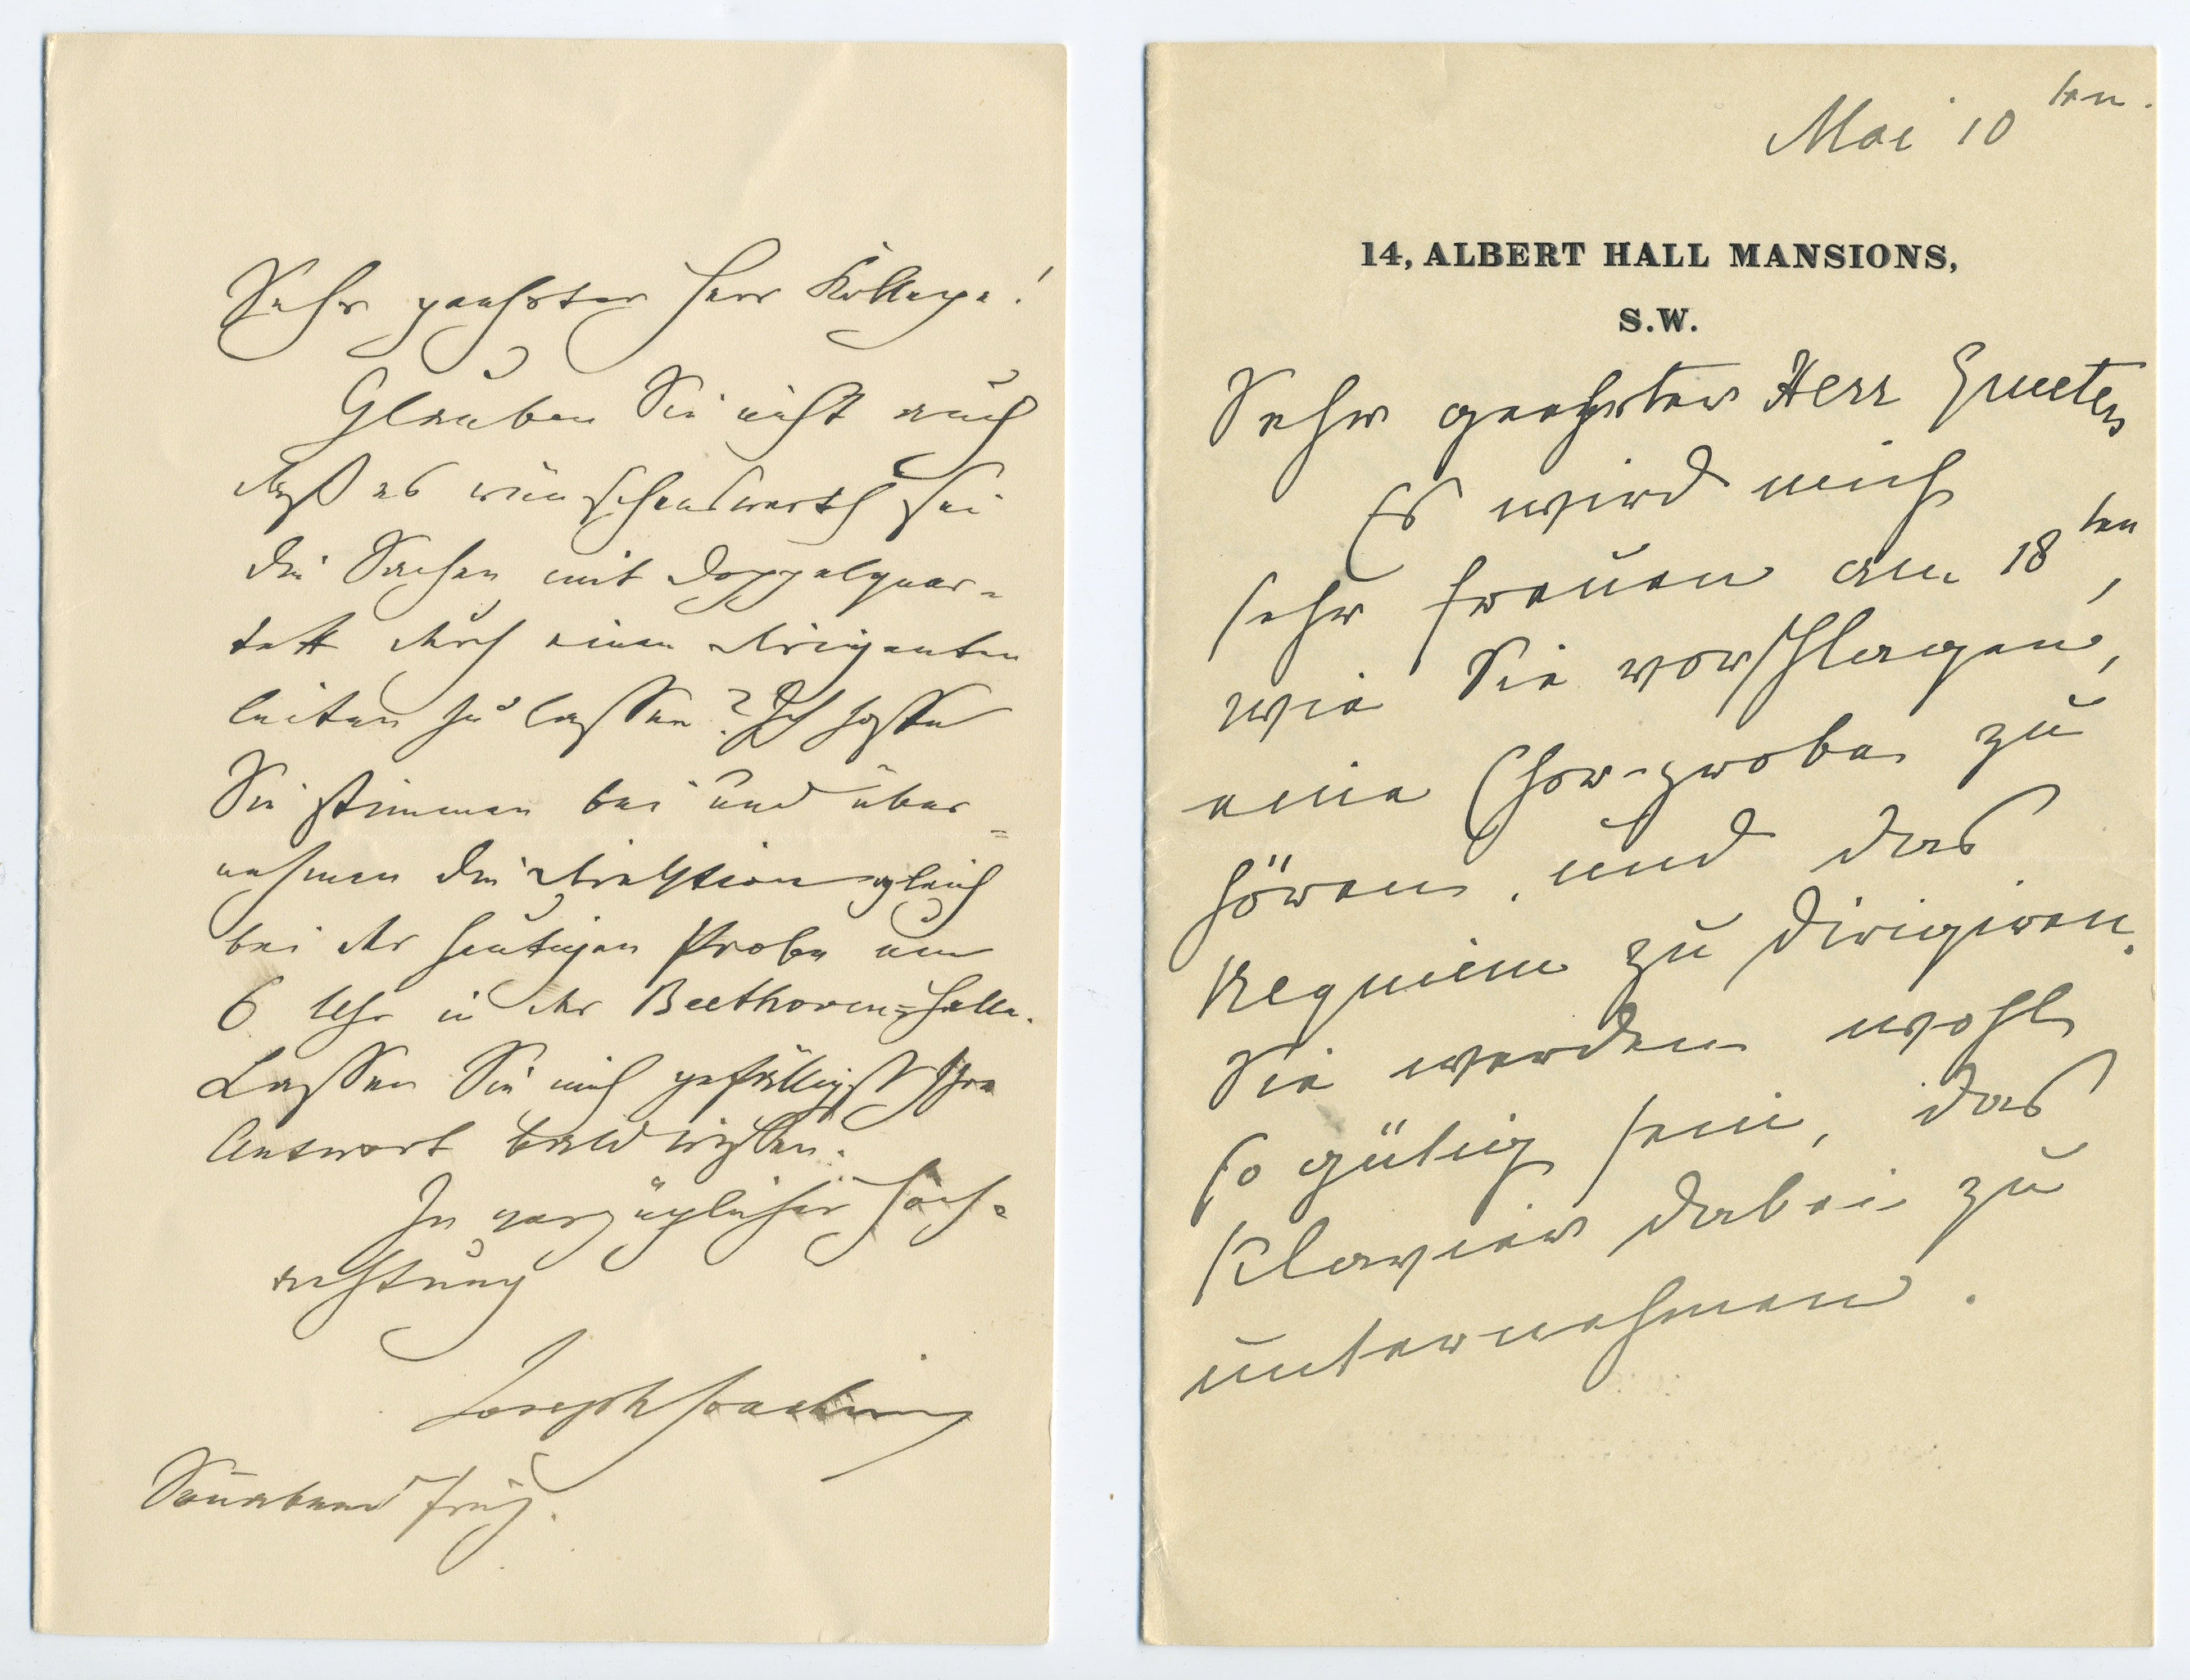 Sehr geehrter Herr Kollege!
Glauben Sie nicht auch
daß es wünschenswerth sei
die Sachen mit Doppelquar-
tett durch einen Dirigenten
leiten zu lassen? Ich hoffe
Sie stimmen bei und über=
nehmen die Direktion gleich
bei der heutigen Probe um
6 Uhr in der Beethoven=Halle.
Lassen Sie mich gefälligst Ihre
Antwort bald wissen.
In vorzüglicher Hoch=
achtung
Joseph Joachim
Sonnabend früh.
Mai 10ten.
14, ALBERT HALL MANSIONS,
S.W.
Sehr geehrter Herr
Es wird mich
sehr freuen am 18ten,
wie Sie vorschlagen,
eine Chor-probe zu
hören, und das
Requiem zu dirigiren.
Sie werden wohl
so gütig sein, das
Klavier dabei zu
unternehmen.